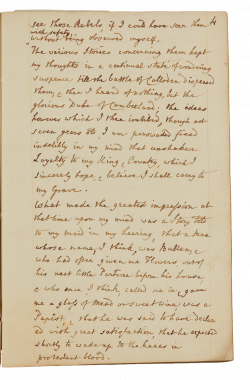 see those Rebels, if I could have seen them &
with safety,
without being observed myself.
The various Stories concerning them kept
my thoughts in a continual state of
suspence till the battle of Culloden dispersed
them, & then I heard of nothing, but the
glorious Duke of Cumberland; the ideas
however which I then imbibed, though not
seven years old I am persuaded fixed
indelibly in my mind that unshaken
Loyalty to my King & Country, which I
sincerely hope, & believe I shall carry to
my Grave.
What made the greatest impression at
that time upon my mind was a Story told
to my maid in my hearing, that a man
whose name, I think, was
who had often given me Flowers out of
his neat little Parterre before his house
& who once I think, called me in, & gave
me a glass of mead or sweet wine, was a
Papist, & that he was said to have declar
ed with great satisfaction that he expected
shortly to wade up to the knees in
protestant blood.